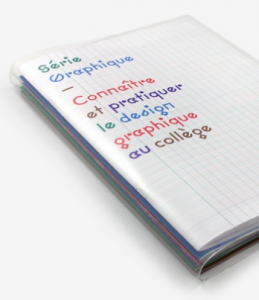 Série
Graphique
—
Connaître
et pratiquer
le design
graphique
au collège